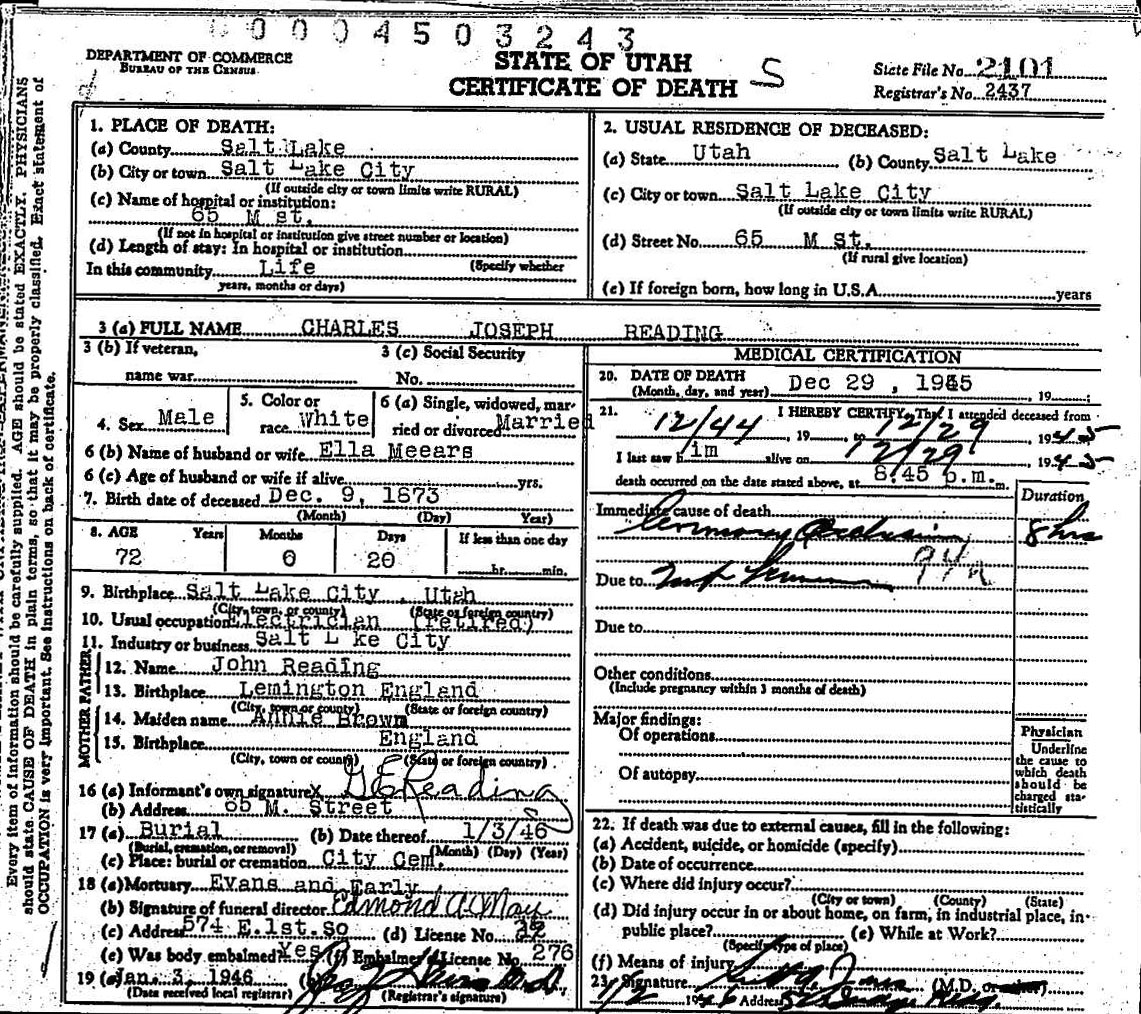 0004503243
DEPARTMENT OF COMMERCE
BUREAU OF THE CENSUS
STATE OF UTAH
CERTIFICATE OF DEATH
S
State File No. 2101
Registrar's No. 2437
Every item of information should be carefully supplied. AGE should be stated EXACTLY. PHYSICIANS
should state CAUSE OF DEATH in plain terms, so that it may be properly classified. Exact statement of
OCCUPATION is very important. See instructions on back of certificate.
1. PLACE OF DEATH:
(a) County Salt Lake
(b) City or town Salt Lake City
(If outside city or town limits write RURAL)
(c) Name of hospital or institution:
65 M st.
(If not in hospital or institution give street number or location)
(d) Length of stay: In hospital or institution
In this community Life (Specify whether
years, months or days)
2. USUAL RESIDENCE OF DECEASED:
(a) State Utah (b) County Salt Lake
(c) City or town Salt Lake City
(If outside city or town limits write RURAL)
(d) Street No. 65 M St.
(If rural give location)
(e) If foreign born, how long in U.S.A. years
3 (a) FULL NAME CHARLES JOSEPH READING
3 (b) If veteran, 3 (c) Social Security
name war No.
4. Sex Male 5. Color or race White 6 (a) Single, widowed, married or divorced Married
6 (b) Name of husband or wife Ella Meears
6 (c) Age of husband or wife if alive yrs.
7. Birth date of deceased Dec. 9, 1873
(Month) (Day) Year)
8. AGE Years Months Days If less than one day
72 0 20 hr. min.
9. Birthplace Salt Lake City, Utah
(City, town, or county) (State or foreign country)
10. Usual occupation Electrician (retired)
11. Industry or business Salt L ke City
FATHER
12. Name John Reading
13. Birthplace Lemington England
(City, town or county) (State or foreign country)
MOTHER
14. Maiden name Annie Brown
15. Birthplace England
(City, town or county) (State or foreign country)
16 (a) Informant's own signature x G E Reading
(b) Address 65 M. Street
17 (a) Burial (b) Date thereof 1/3/46
(Burial, cremation, or removal) (Month) (Day) (Year)
(c) Place: burial or cremation City Cem.
18 (a) Mortuary Evans and Early
(b) Signature of funeral director Edmond A May
(c) Address 574 E.1st.So (d) License No. 32
(e) Was body embalmed? Yes (f) Embalmer License No. 276
19 (a) Jan. 3, 1946 (b)
(Data received local registrar) (Registrar's signature)
MEDICAL CERTIFICATION
20. DATE OF DEATH Dec 29, 1945
(Month, day, and year) , 19
21. I HEREBY CERTIFY, That I attended deceased from
12/44, 19 to 12/29, 1945
I last saw him alive on 12/29, 1945
death occurred on the date stated above, at 8:45 p.m. m.
Duration
Immediate cause of death
Coronary Occlusion 8 hrs
94a
Due to
Due to
Other conditions
(Include pregnancy within 3 months of death)
Major findings:
Of operations
Of autopsy
Physician
Underline
the cause to
which death
should be
charged sta-
tistically
22. If death was due to external causes, fill in the following:
(a) Accident, suicide, or homicide (specify)
(b) Date of occurrence
(c) Where did injury occur?
(City or town) (County) (State)
(d) Did injury occur in or about home, on farm, in industrial place, in
public place? (e) While at Work?
(Specify type of place)
(f) Means of injury
23. Signature (M.D. or
1/2 1946 Address